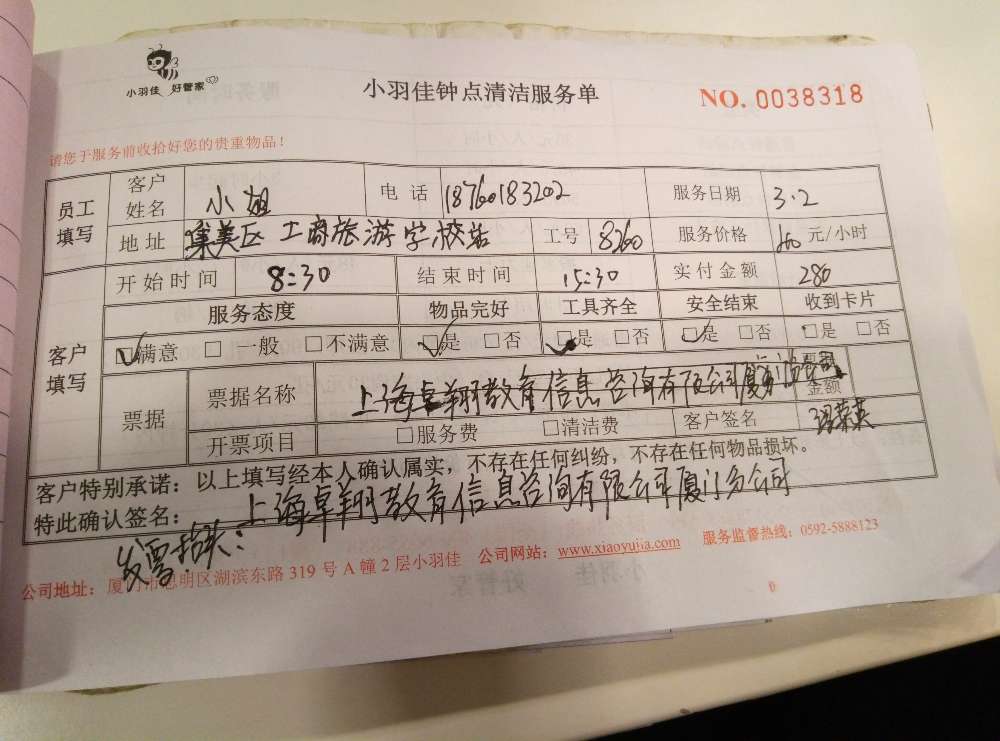 小羽佳 好管家
小羽佳钟点清洁服务单
NO. 0038318
请您于服务前收拾好您的贵重物品！
员工填写 客户姓名 小姐 电话 18760183202 服务日期 3.2
地址 集美区工商旅游学校站 工号 8260 服务价格 40 元/小时
开始时间 8:30 结束时间 15:30 实付金额 280
客户填写 服务态度 物品完好 工具齐全 安全结束 收到卡片
☑满意 □一般 □不满意 ☑是 □否 ☑是 □否 ☑是 □否 □是 □否
票据 票据名称 上海卓翔教育信息咨询有限公司厦门分公司 票据金额
开票项目 □服务费 □清洁费 客户签名
客户特别承诺：以上填写经本人确认属实，不存在任何纠纷，不存在任何物品损坏。
特此确认签名：上海卓翔教育信息咨询有限公司厦门分公司
发票抬头：
公司地址：厦门市思明区湖滨东路 319 号 A 幢 2 层小羽佳 公司网站：www.xiaoyujia.com 服务监督热线：0592-5888123